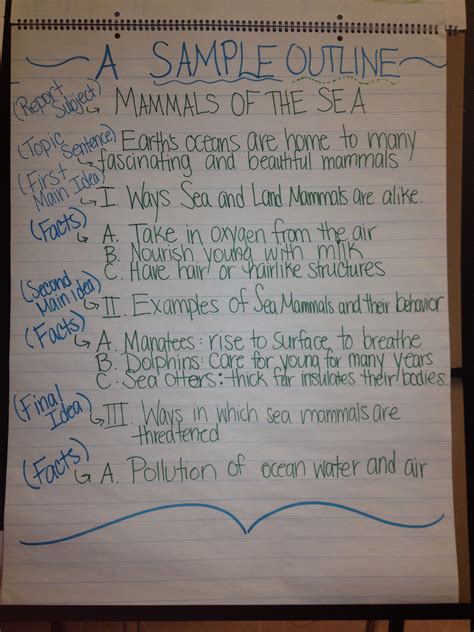 A SAMPLE OUTLINE
(Report Subject) MAMMALS OF THE SEA
(Topic Sentence) Earth's oceans are home to many
fascinating and beautiful mammals
(First Main Idea) I. Ways Sea and Land Mammals are alike.
(Facts) A. Take in oxygen from the air
B. Nourish young with milk
C. Have hair or hairlike structures
(Second Main idea) II. Examples of Sea Mammals and their behavior
(Facts) A. Manatees: rise to surface to breathe
B. Dolphins: care for young for many years
C. Sea Otters: thick fur insulates their bodies.
(Final Idea) III. Ways in which sea mammals are
threatened
(Facts) A. Pollution of ocean water and air